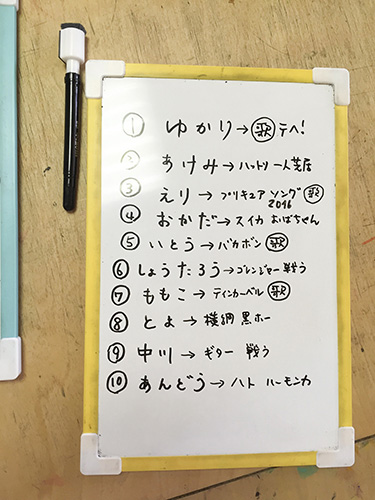 ① ゆかり→歌 テヘ!
② あけみ→ハットリ 一人芝居
③ えり→プリキュア ソング 歌
2016
④ おかだ→スイカ おばちゃん
⑤ いとう→バカボン 歌
⑥ しょうたろう→ゴレンジャー 戦う
⑦ ももこ→ティンカーベル 歌
⑧ とよ→横綱 黒ホー
⑨ 中川→ギター 戦う
⑩ あんどう→ハト ハーモニカ